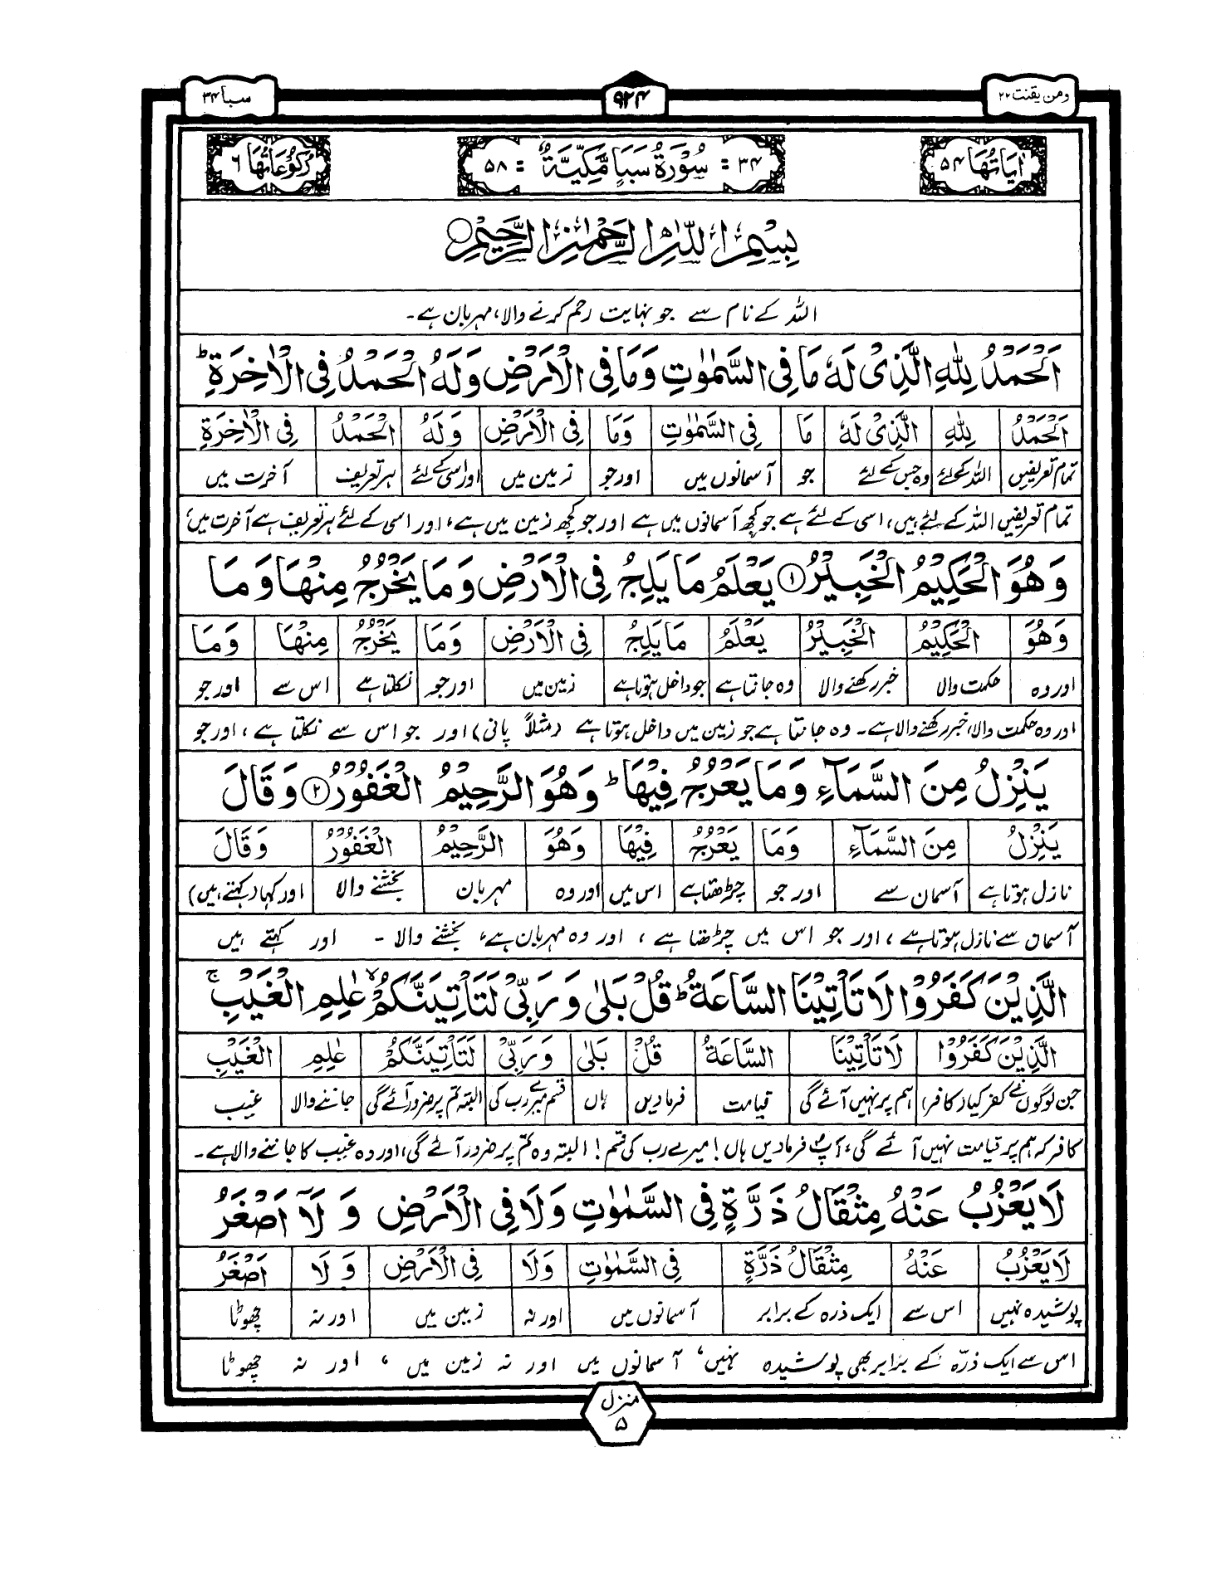 ومن یقنت ۲۲ ۹۲۴ سبا ۳۴
اٰیَاتُهَا ۵۴ ۳۴ = سُوْرَةُ سَبَاٍ مَّكِّيَّةٌ = ۵۸ رُكُوْعَاتُهَا ۶
بِسْمِ اللّٰهِ الرَّحْمٰنِ الرَّحِيْمِ
اللہ کے نام سے جو نہایت رحم کرنے والا، مہربان ہے۔
اَلْحَمْدُ لِلّٰهِ الَّذِیْ لَهٗ مَا فِی السَّمٰوٰتِ وَمَا فِی الْاَرْضِ وَلَهُ الْحَمْدُ فِی الْاٰخِرَةِ ؕ
اَلْحَمْدُ لِلّٰهِ الَّذِیْ لَهٗ مَا فِی السَّمٰوٰتِ وَمَا فِی الْاَرْضِ وَلَهُ الْحَمْدُ فِی الْاٰخِرَةِ
تمام تعریفیں اللہ کیلئے وہ جس کے لئے جو آسمانوں میں اور جو زمین میں اور اسی کے لئے ہر تعریف آخرت میں
تمام تعریفیں اللہ کے لئے ہیں، اسی کے لئے ہے جو کچھ آسمانوں میں ہے اور جو کچھ زمین میں ہے، اور اسی کے لئے ہر تعریف ہے آخرت میں،
وَهُوَ الْحَكِیْمُ الْخَبِیْرُ ۱ یَعْلَمُ مَا یَلِجُ فِی الْاَرْضِ وَمَا یَخْرُجُ مِنْهَا وَمَا
وَهُوَ الْحَكِیْمُ الْخَبِیْرُ یَعْلَمُ مَا یَلِجُ فِی الْاَرْضِ وَمَا یَخْرُجُ مِنْهَا وَمَا
اور وہ حکمت والا خبر رکھنے والا وہ جانتا ہے جو داخل ہوتا ہے زمین میں اور جو نکلتا ہے اس سے اور جو
اور وہ حکمت والا، خبر رکھنے والا ہے۔ وہ جانتا ہے جو زمین میں داخل ہوتا ہے (مثلاً پانی) اور جو اس سے نکلتا ہے، اور جو
یَنْزِلُ مِنَ السَّمَآءِ وَمَا یَعْرُجُ فِیْهَا ؕ وَهُوَ الرَّحِیْمُ الْغَفُوْرُ ۲ وَقَالَ
یَنْزِلُ مِنَ السَّمَآءِ وَمَا یَعْرُجُ فِیْهَا وَهُوَ الرَّحِیْمُ الْغَفُوْرُ وَقَالَ
نازل ہوتا ہے آسمان سے اور جو چڑھتا ہے اس میں اور وہ مہربان بخشنے والا اور کہا (کہتے ہیں)
آسمان سے نازل ہوتا ہے، اور جو اس میں چڑھتا ہے، اور وہ مہربان ہے، بخشنے والا۔ اور کہتے ہیں
الَّذِیْنَ كَفَرُوْا لَا تَاْتِیْنَا السَّاعَةُ ؕ قُلْ بَلٰی وَرَبِّیْ لَتَاْتِیَنَّكُمْ ۙ عٰلِمِ الْغَیْبِ ۚ
الَّذِیْنَ كَفَرُوْا لَا تَاْتِیْنَا السَّاعَةُ قُلْ بَلٰی وَرَبِّیْ لَتَاْتِیَنَّكُمْ عٰلِمِ الْغَیْبِ
جن لوگوں نے کفر کیا (کافر) ہم پر نہیں آئے گی قیامت فرما دیں ہاں قسم میرے رب کی البتہ تم پر ضرور آئے گی جاننے والا غیب
کافر کہ ہم پر قیامت نہیں آئے گی، آپؐ فرما دیں ہاں! میرے رب کی قسم! البتہ وہ تم پر ضرور آئے گی، اور وہ غیب کا جاننے والا ہے۔
لَا یَعْزُبُ عَنْهُ مِثْقَالُ ذَرَّةٍ فِی السَّمٰوٰتِ وَلَا فِی الْاَرْضِ وَلَاۤ اَصْغَرُ
لَا یَعْزُبُ عَنْهُ مِثْقَالُ ذَرَّةٍ فِی السَّمٰوٰتِ وَلَا فِی الْاَرْضِ وَلَا اَصْغَرُ
پوشیدہ نہیں اس سے ایک ذرہ کے برابر آسمانوں میں اور نہ زمین میں اور نہ چھوٹا
اس سے ایک ذرّہ کے برابر بھی پوشیدہ نہیں، آسمانوں میں اور نہ زمین میں، اور نہ چھوٹا
منزل
۵